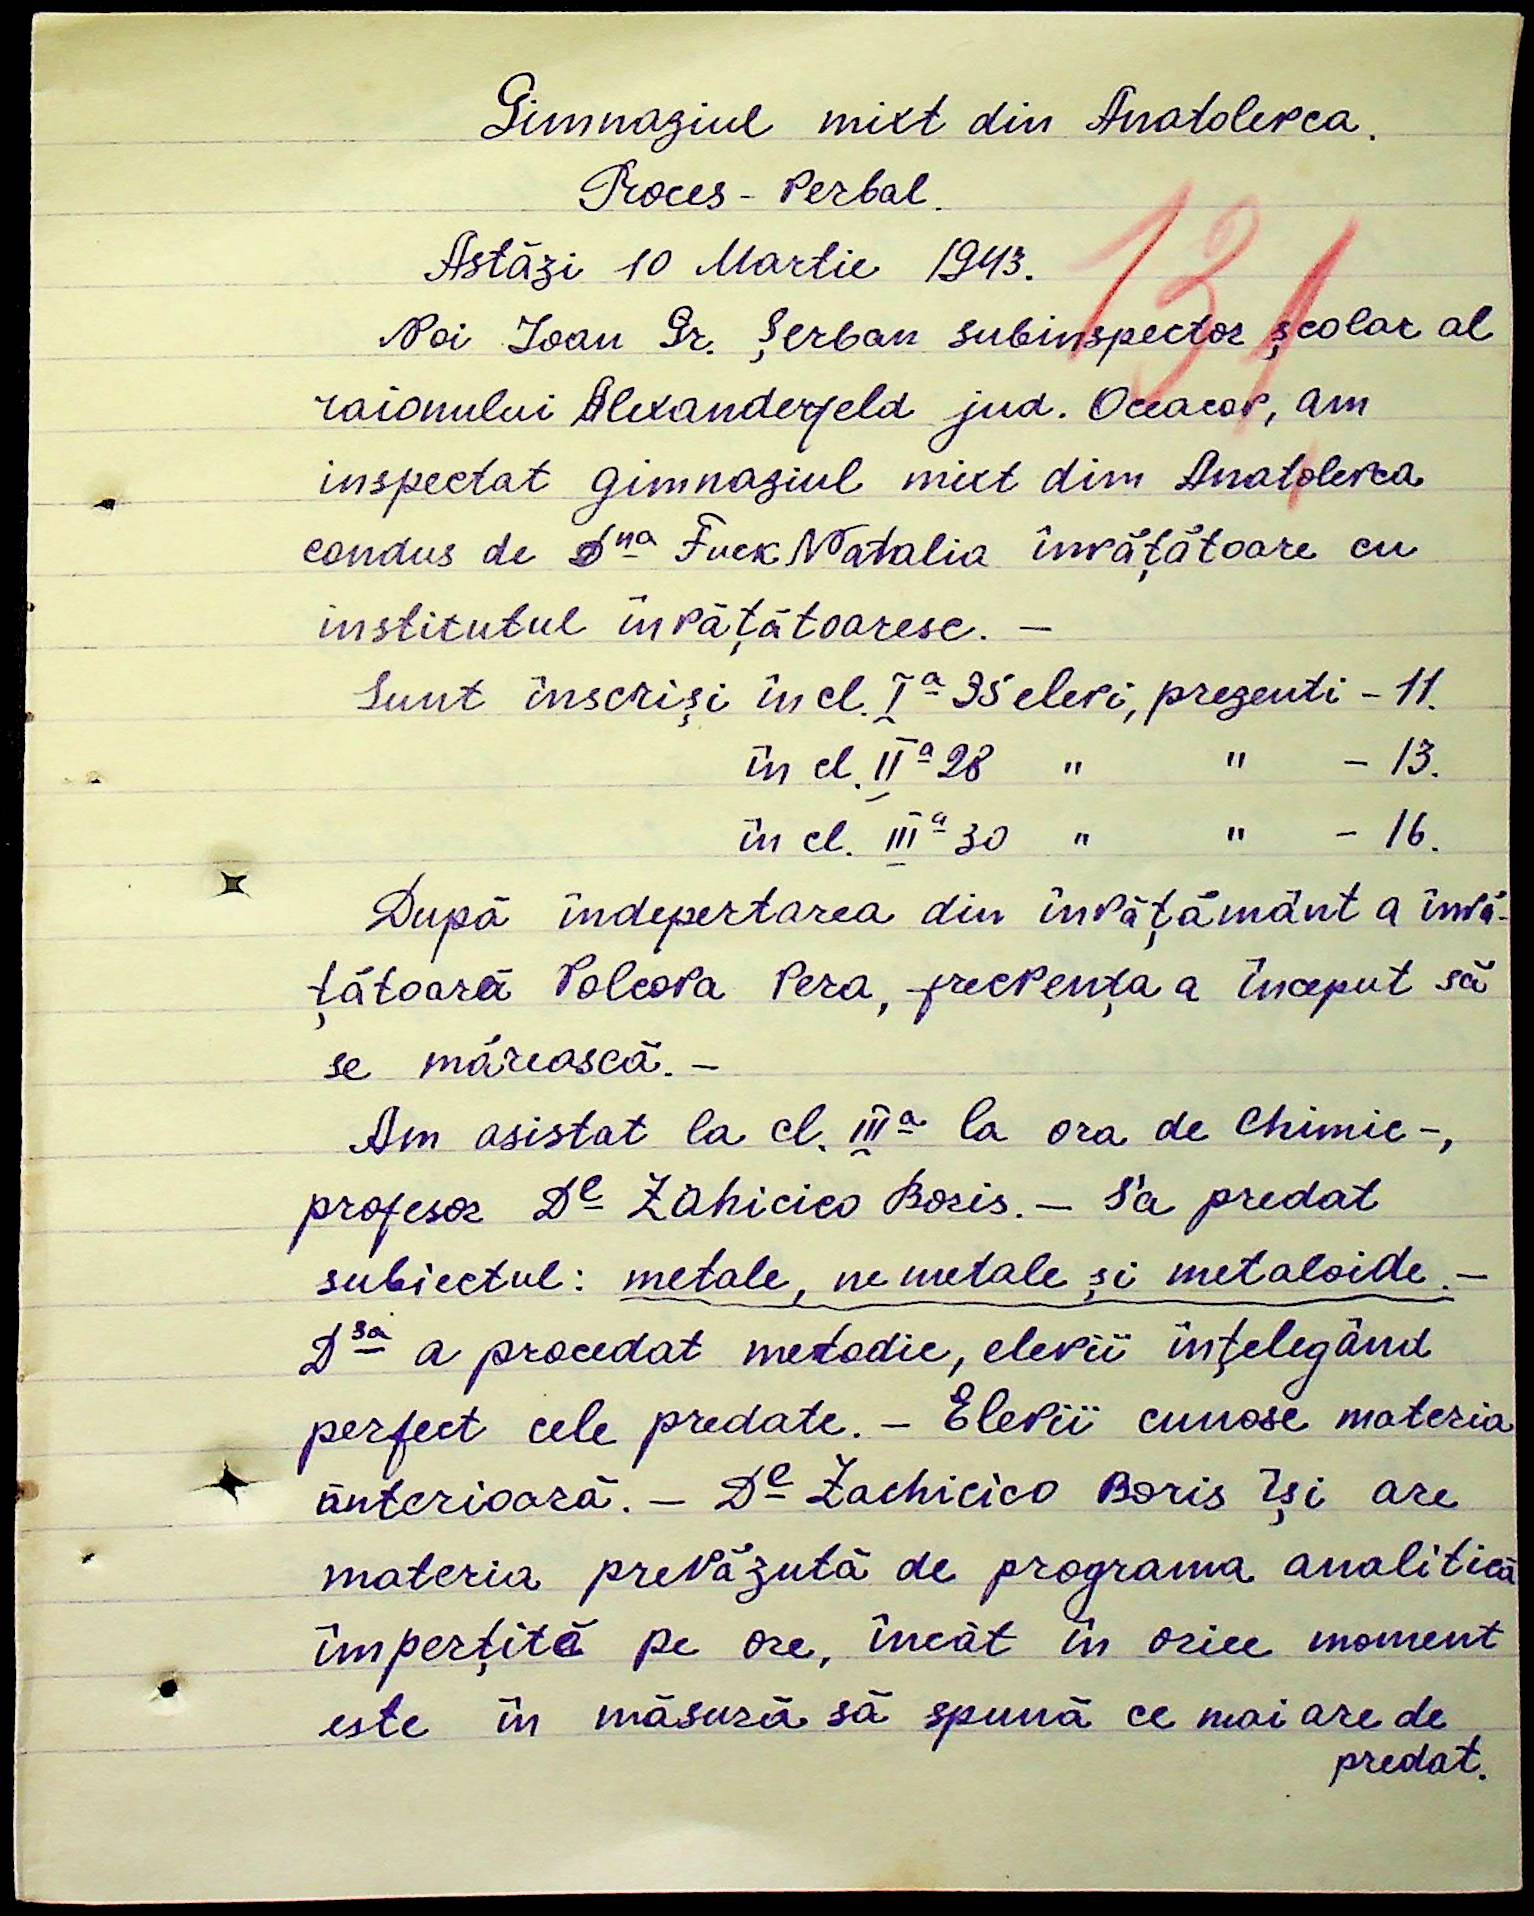 Gimnaziul mixt din Anatolevca.
Proces-Verbal.
131
Astăzi 10 Martie 1943.
Noi Ioan Gr. Șerban subinspector școlar al
raionului Alexanderfeld jud. Oceacov, am
inspectat gimnaziul mixt dim Anatolevca
condus de Dna Fuck Natalia învățătoare cu
institutul învățătoresc. —
Sunt înscriși în cl. Ia 35 elevi, prezenti - 11.
în cl. IIa 28 " " - 13.
în cl. IIIa 30 " " - 16.
După îndepertarea din învățământ a învă-
țătoară Volcova Vera, frecvența a început să
se mărească. —
Am asistat la cl. IIIa la ora de Chimie -,
profesor Dl Zahicico Boris. — S'a predat
subiectul: metale, nemetale și metaloide. —
Dsa a procedat metodic, elevii înțelegând
perfect cele predate. — Elevii cunosc materia
anterioară. — Dl Zachicico Boris își are
materia prevăzută de programa analitică
împerțită pe ore, încât în orice moment
este în măsură să spună ce mai are de
predat.